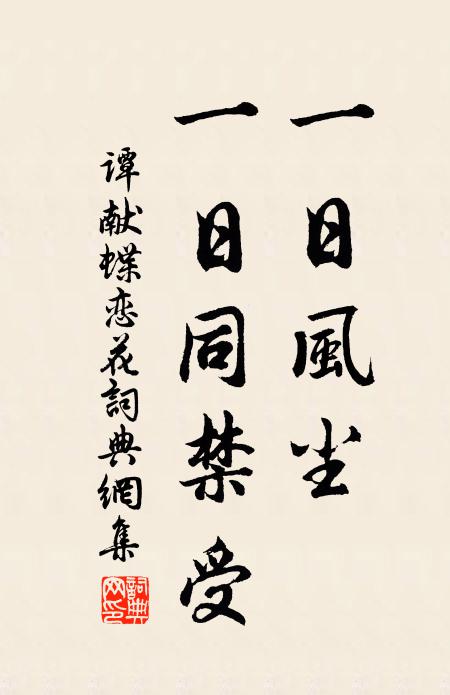 一日風尘
一日同禁受
谭献蝶恋花詞典網集
詞典網印